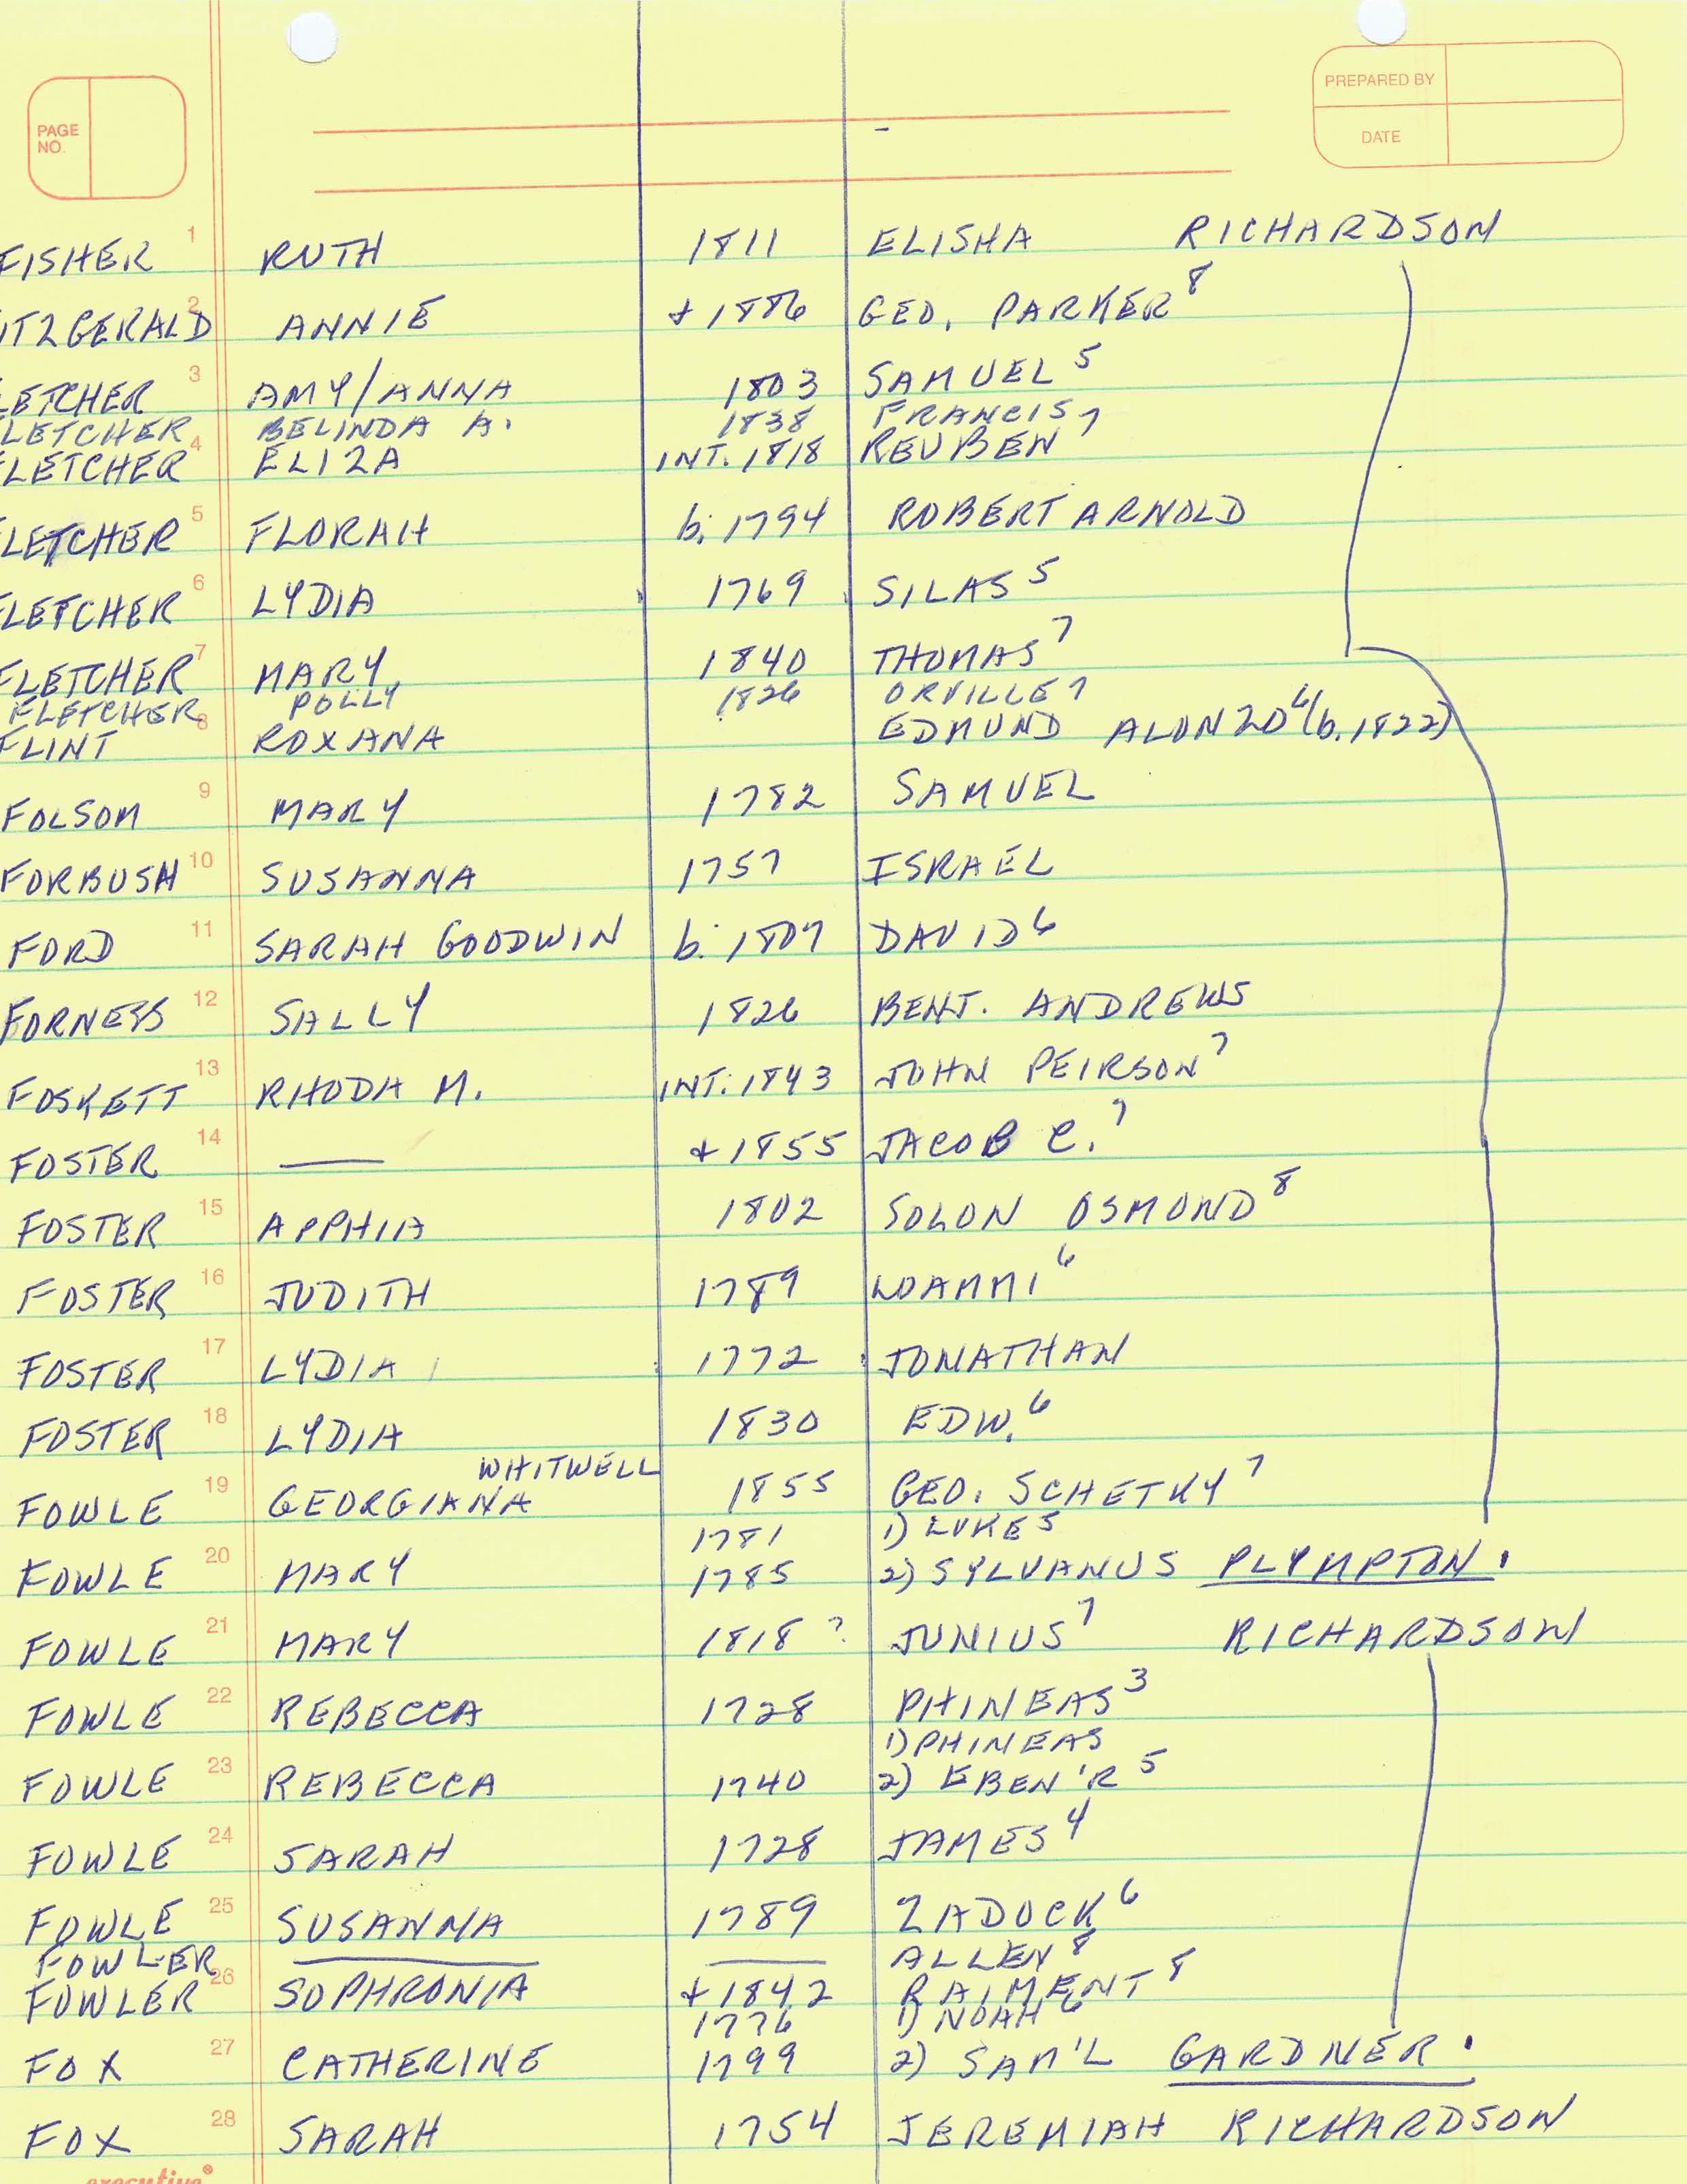 PAGE NO.
PREPARED BY
DATE
1 FISHER RUTH 1811 ELISHA RICHARDSON
2 ITZGERALD ANNIE + 1886 GEO. PARKER 8
3 LETCHER AMY/ANNA 1803 SAMUEL 5
LETCHER BELINDA A. 1838 FRANCIS 7
4 LETCHER ELIZA INT. 1818 REUBEN
5 LETCHER FLORAH b. 1794 ROBERT ARNOLD
6 LETCHER LYDIA 1769 SILAS 5
7 FLETCHER MARY 1840 THOMAS 7
FLETCHER POLLY 1826 ORVILLE 7
8 FLINT ROXANA EDMUND ALONZO 6 (b. 1822)
9 FOLSOM MARY 1782 SAMUEL
10 FORBUSH SUSANNA 1757 ISRAEL
11 FORD SARAH GOODWIN b. 1807 DAVID 6
12 FORNESS SALLY 1826 BENJ. ANDREWS
13 FOSKETT RHODA M. INT. 1843 JOHN PEIRSON 7
14 FOSTER — + 1855 JACOB C. 7
15 FOSTER APPHIA 1802 SOLON OSMOND 8
16 FOSTER JUDITH 1789 LOAMMI 6
17 FOSTER LYDIA 1772 JONATHAN
18 FOSTER LYDIA 1830 EDW. 6
WHITWELL
19 FOWLE GEORGIANA 1855 GEO. SCHETKY 7
1781 1) LUKE 5
20 FOWLE MARY 1785 2) SYLVANUS PLYMPTON.
21 FOWLE MARY 1818 ? JUNIUS 7 RICHARDSON
22 FOWLE REBECCA 1728 PHINEAS 3
1) PHINEAS
23 FOWLE REBECCA 1740 2) EBEN'R 5
24 FOWLE SARAH 1728 JAMES 4
25 FOWLE SUSANNA 1789 ZADOCK 6
FOWLER — — ALLEN 8
26 FOWLER SOPHRONIA + 1842 RAIMENT 8
1776 1) NOAH 6
27 FOX CATHERINE 1799 2) SAM'L GARDNER.
28 FOX SARAH 1754 JEREMIAH RICHARDSON
executive®